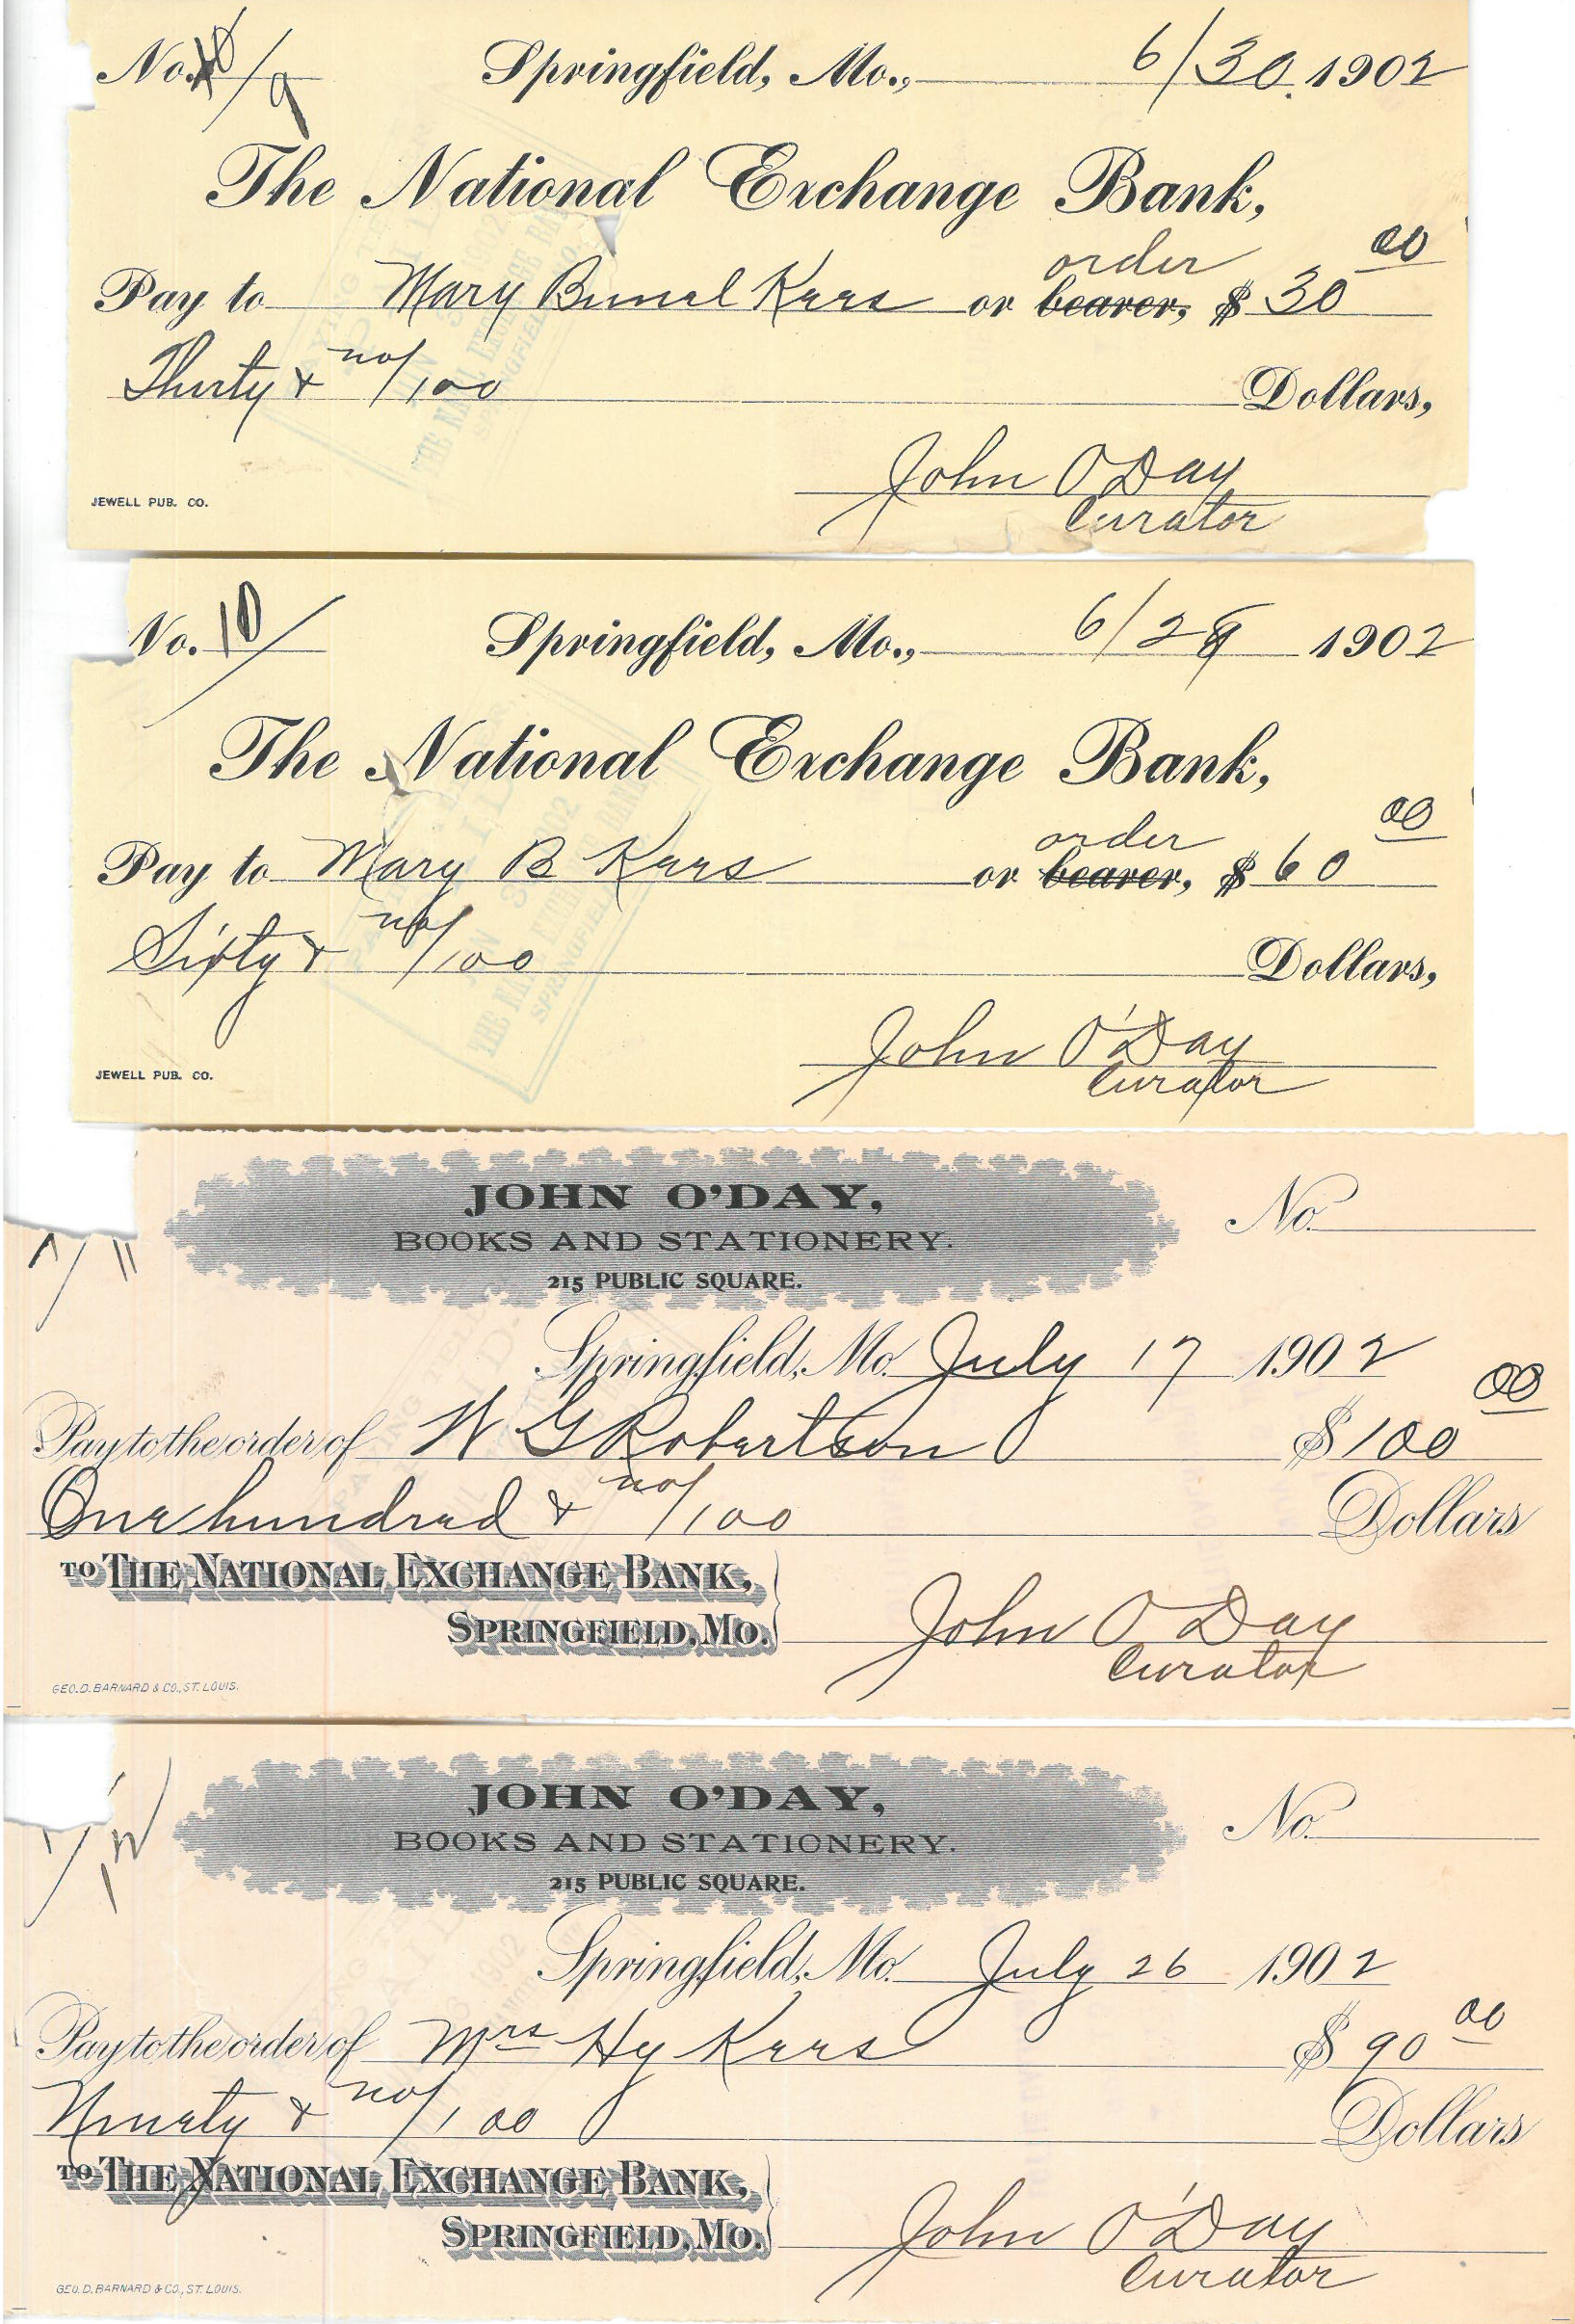 No. 9
Springfield, Mo., 6/30. 1902
The National Exchange Bank,
order 00
Pay to Mary Bunel Kers or bearer, $ 30
Thirty & no/100 Dollars,
John O'Day
Curator
JEWELL PUB. CO.
No. 10
Springfield, Mo., 6/28 1902
The National Exchange Bank,
order 00
Pay to Mary B Kers or bearer, $ 60
Sixty & no/100 Dollars,
John O'Day
Curator
JEWELL PUB. CO.
JOHN O'DAY,
BOOKS AND STATIONERY.
215 PUBLIC SQUARE.
No.
11
Springfield, Mo. July 17 1902
Pay to the order of W G Robertson $ 100 00
One hundred & no/100 Dollars
TO THE NATIONAL EXCHANGE BANK,
SPRINGFIELD, MO.
John O Day
Curator
GEO. D. BARNARD & CO., ST. LOUIS.
JOHN O'DAY,
BOOKS AND STATIONERY.
215 PUBLIC SQUARE.
No.
12
Springfield, Mo. July 26 1902
Pay to the order of Mrs Hy Kers $ 90 00
Ninety & no/100 Dollars
TO THE NATIONAL EXCHANGE BANK,
SPRINGFIELD, MO.
John O'Day
Curator
GEO. D. BARNARD & CO., ST. LOUIS.